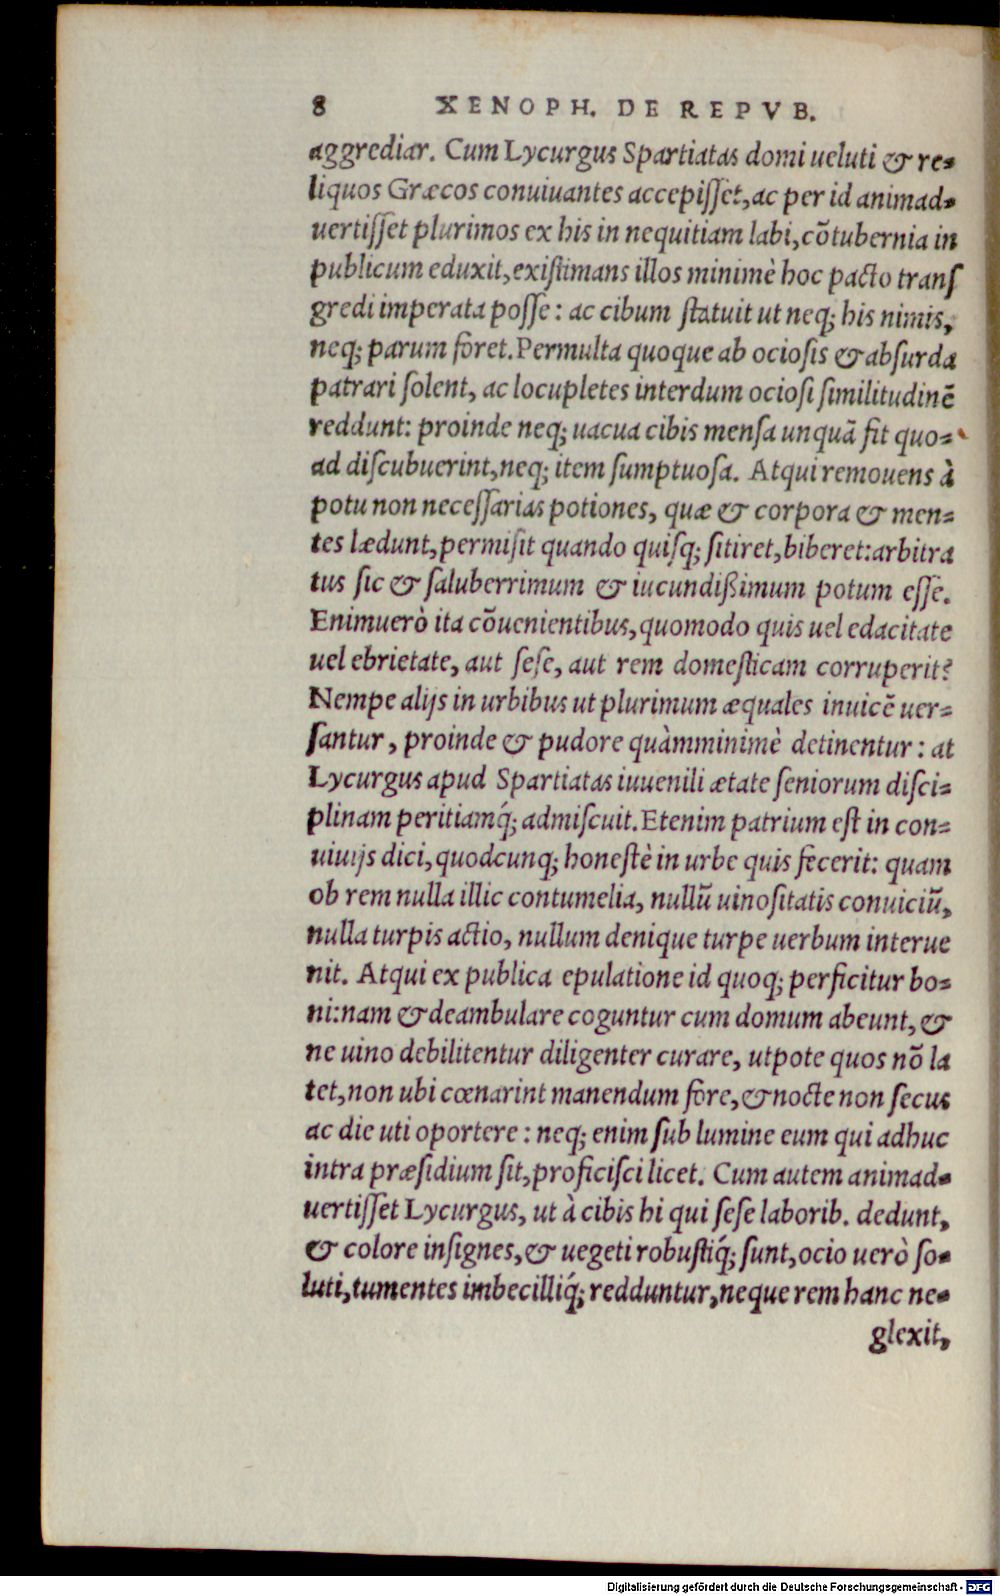 8 XENOPH. DE REPVB.
aggrediar. Cum Lycurgus Spartiatas domi ueluti & re-
liquos Græcos conuiuantes accepiſſet, ac per id animad-
uertiſſet plurimos ex his in nequitiam labi, cōtubernia in
publicum eduxit, exiſtimans illos minimè hoc pacto tranſ
gredi imperata poſſe: ac cibum ſtatuit ut neq; his nimis,
neq; parum foret. Permulta quoque ab ocioſis & abſurda
patrari ſolent, ac locupletes interdum ocioſi ſimilitudinē
reddunt: proinde neq; uacua cibis menſa unquā fit quo-
ad diſcubuerint, neq; item ſumptuoſa. Atqui remouens à
potu non neceſſarias potiones, quæ & corpora & men-
tes lædunt, permiſit quando quiſq; ſitiret, biberet: arbitra
tus ſic & ſaluberrimum & iucundißimum potum eſſe.
Enimuerò ita cōuenientibus, quomodo quis uel edacitate
uel ebrietate, aut ſeſe, aut rem domeſticam corruperit?
Nempe alijs in urbibus ut plurimum æquales inuicē uer-
ſantur, proinde & pudore quàmminimè detinentur: at
Lycurgus apud Spartiatas iuuenili ætate ſeniorum diſci-
plinam peritiamq́; admiſcuit. Etenim patrium eſt in con-
uiuijs dici, quodcunq; honeſtè in urbe quis fecerit: quam
ob rem nulla illic contumelia, nullū uinoſitatis conuiciū,
nulla turpis actio, nullum denique turpe uerbum interue
nit. Atqui ex publica epulatione id quoq; perficitur bo-
ni: nam & deambulare coguntur cum domum abeunt, &
ne uino debilitentur diligenter curare, utpote quos nō la
tet, non ubi cœnarint manendum fore, & nocte non ſecus
ac die uti oportere: neq; enim ſub lumine eum qui adhuc
intra præſidium ſit, proficiſci licet. Cum autem animad-
uertiſſet Lycurgus, ut à cibis hi qui ſeſe laborib. dedunt,
& colore inſignes, & uegeti robuſtiq́; ſunt, ocio uerò ſo-
luti, tumentes imbecilliq́; redduntur, neque rem hanc ne-
glexit,
Digitalisierung gefördert durch die Deutsche Forschungsgemeinschaft - DFG